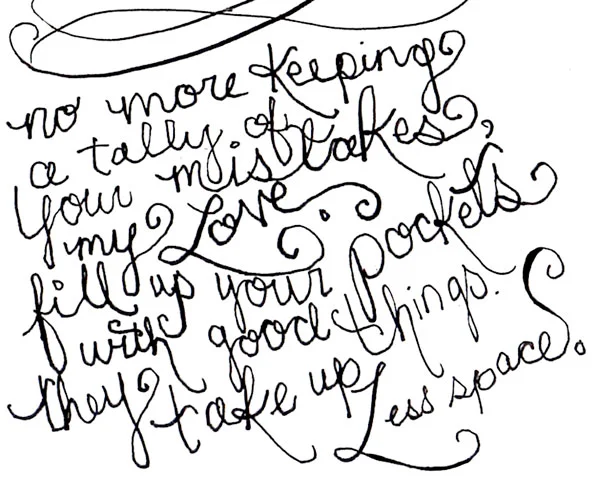 no more keeping
a tally of
your mistakes,
my Love.
fill up your pockets
with good things.
they take up Less space.